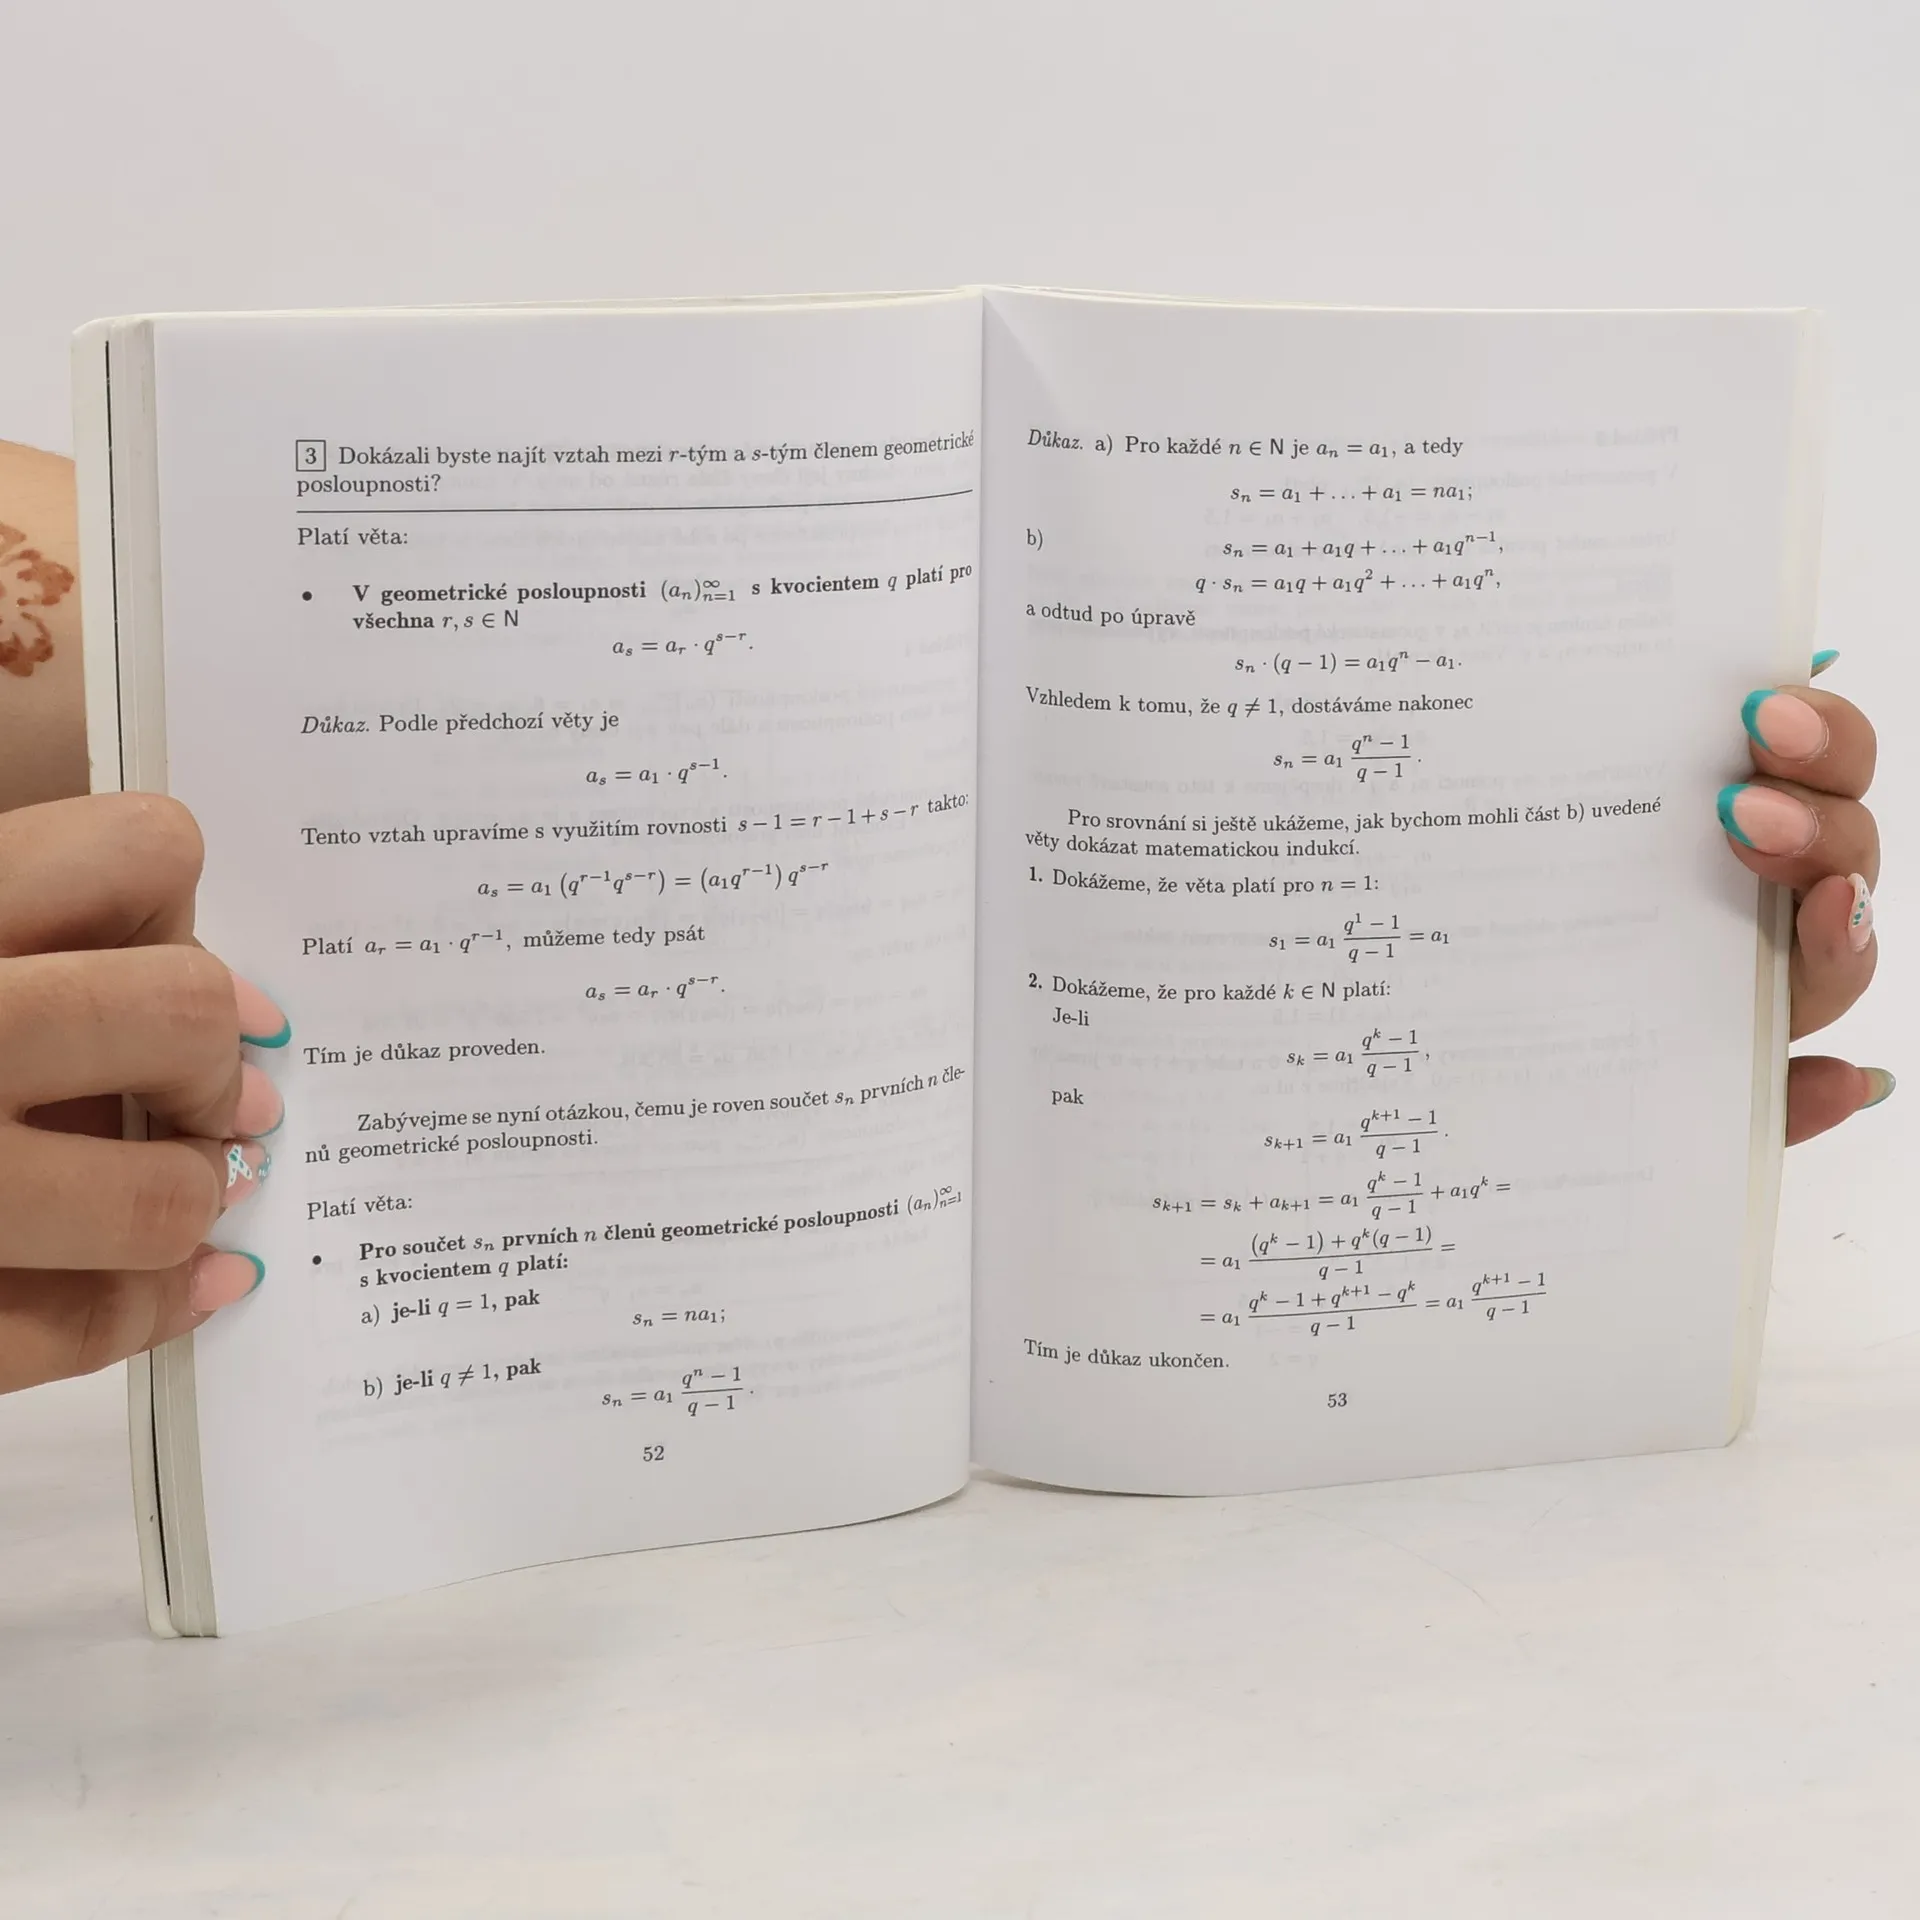 3 Dokázali byste najít vztah mezi r-tým a s-tým členem geometrické
posloupnosti?
Platí věta:
• V geometrické posloupnosti (aₙ)ₙ₌₁^∞ s kvocientem q platí pro
všechna r, s ∈ N
aₛ = aᵣ · q^{s−r}.
Důkaz. Podle předchozí věty je
aₛ = a₁ · q^{s−1}.
Tento vztah upravíme s využitím rovnosti s − 1 = r − 1 + s − r takto:
aₛ = a₁ (q^{r−1}q^{s−r}) = (a₁q^{r−1}) q^{s−r}
Platí aᵣ = a₁ · q^{r−1}, můžeme tedy psát
aₛ = aᵣ · q^{s−r}.
Tím je důkaz proveden.
Zabývejme se nyní otázkou, čemu je roven součet sₙ prvních n čle-
nů geometrické posloupnosti.
Platí věta:
• Pro součet sₙ prvních n členů geometrické posloupnosti (aₙ)ₙ₌₁^∞
s kvocientem q platí:
a) je-li q = 1, pak
sₙ = na₁;
b) je-li q ≠ 1, pak
sₙ = a₁ (qⁿ − 1)/(q − 1).
52
Důkaz. a) Pro každé n ∈ N je aₙ = a₁, a tedy
sₙ = a₁ + ... + a₁ = na₁;
b) sₙ = a₁ + a₁q + ... + a₁q^{n−1},
q · sₙ = a₁q + a₁q² + ... + a₁qⁿ,
a odtud po úpravě
sₙ · (q − 1) = a₁qⁿ − a₁.
Vzhledem k tomu, že q ≠ 1, dostáváme nakonec
sₙ = a₁ (qⁿ − 1)/(q − 1).
Pro srovnání si ještě ukážeme, jak bychom mohli část b) uvedené
věty dokázat matematickou indukcí.
1. Dokážeme, že věta platí pro n = 1:
s₁ = a₁ (q¹ − 1)/(q − 1) = a₁
2. Dokážeme, že pro každé k ∈ N platí:
Je-li
sₖ = a₁ (q^k − 1)/(q − 1),
pak
sₖ₊₁ = a₁ (q^{k+1} − 1)/(q − 1).
sₖ₊₁ = sₖ + aₖ₊₁ = a₁ (q^k − 1)/(q − 1) + a₁q^k =
= a₁ ((q^k − 1) + q^k(q − 1))/(q − 1) =
= a₁ (q^k − 1 + q^{k+1} − q^k)/(q − 1) = a₁ (q^{k+1} − 1)/(q − 1)
Tím je důkaz ukončen.
53